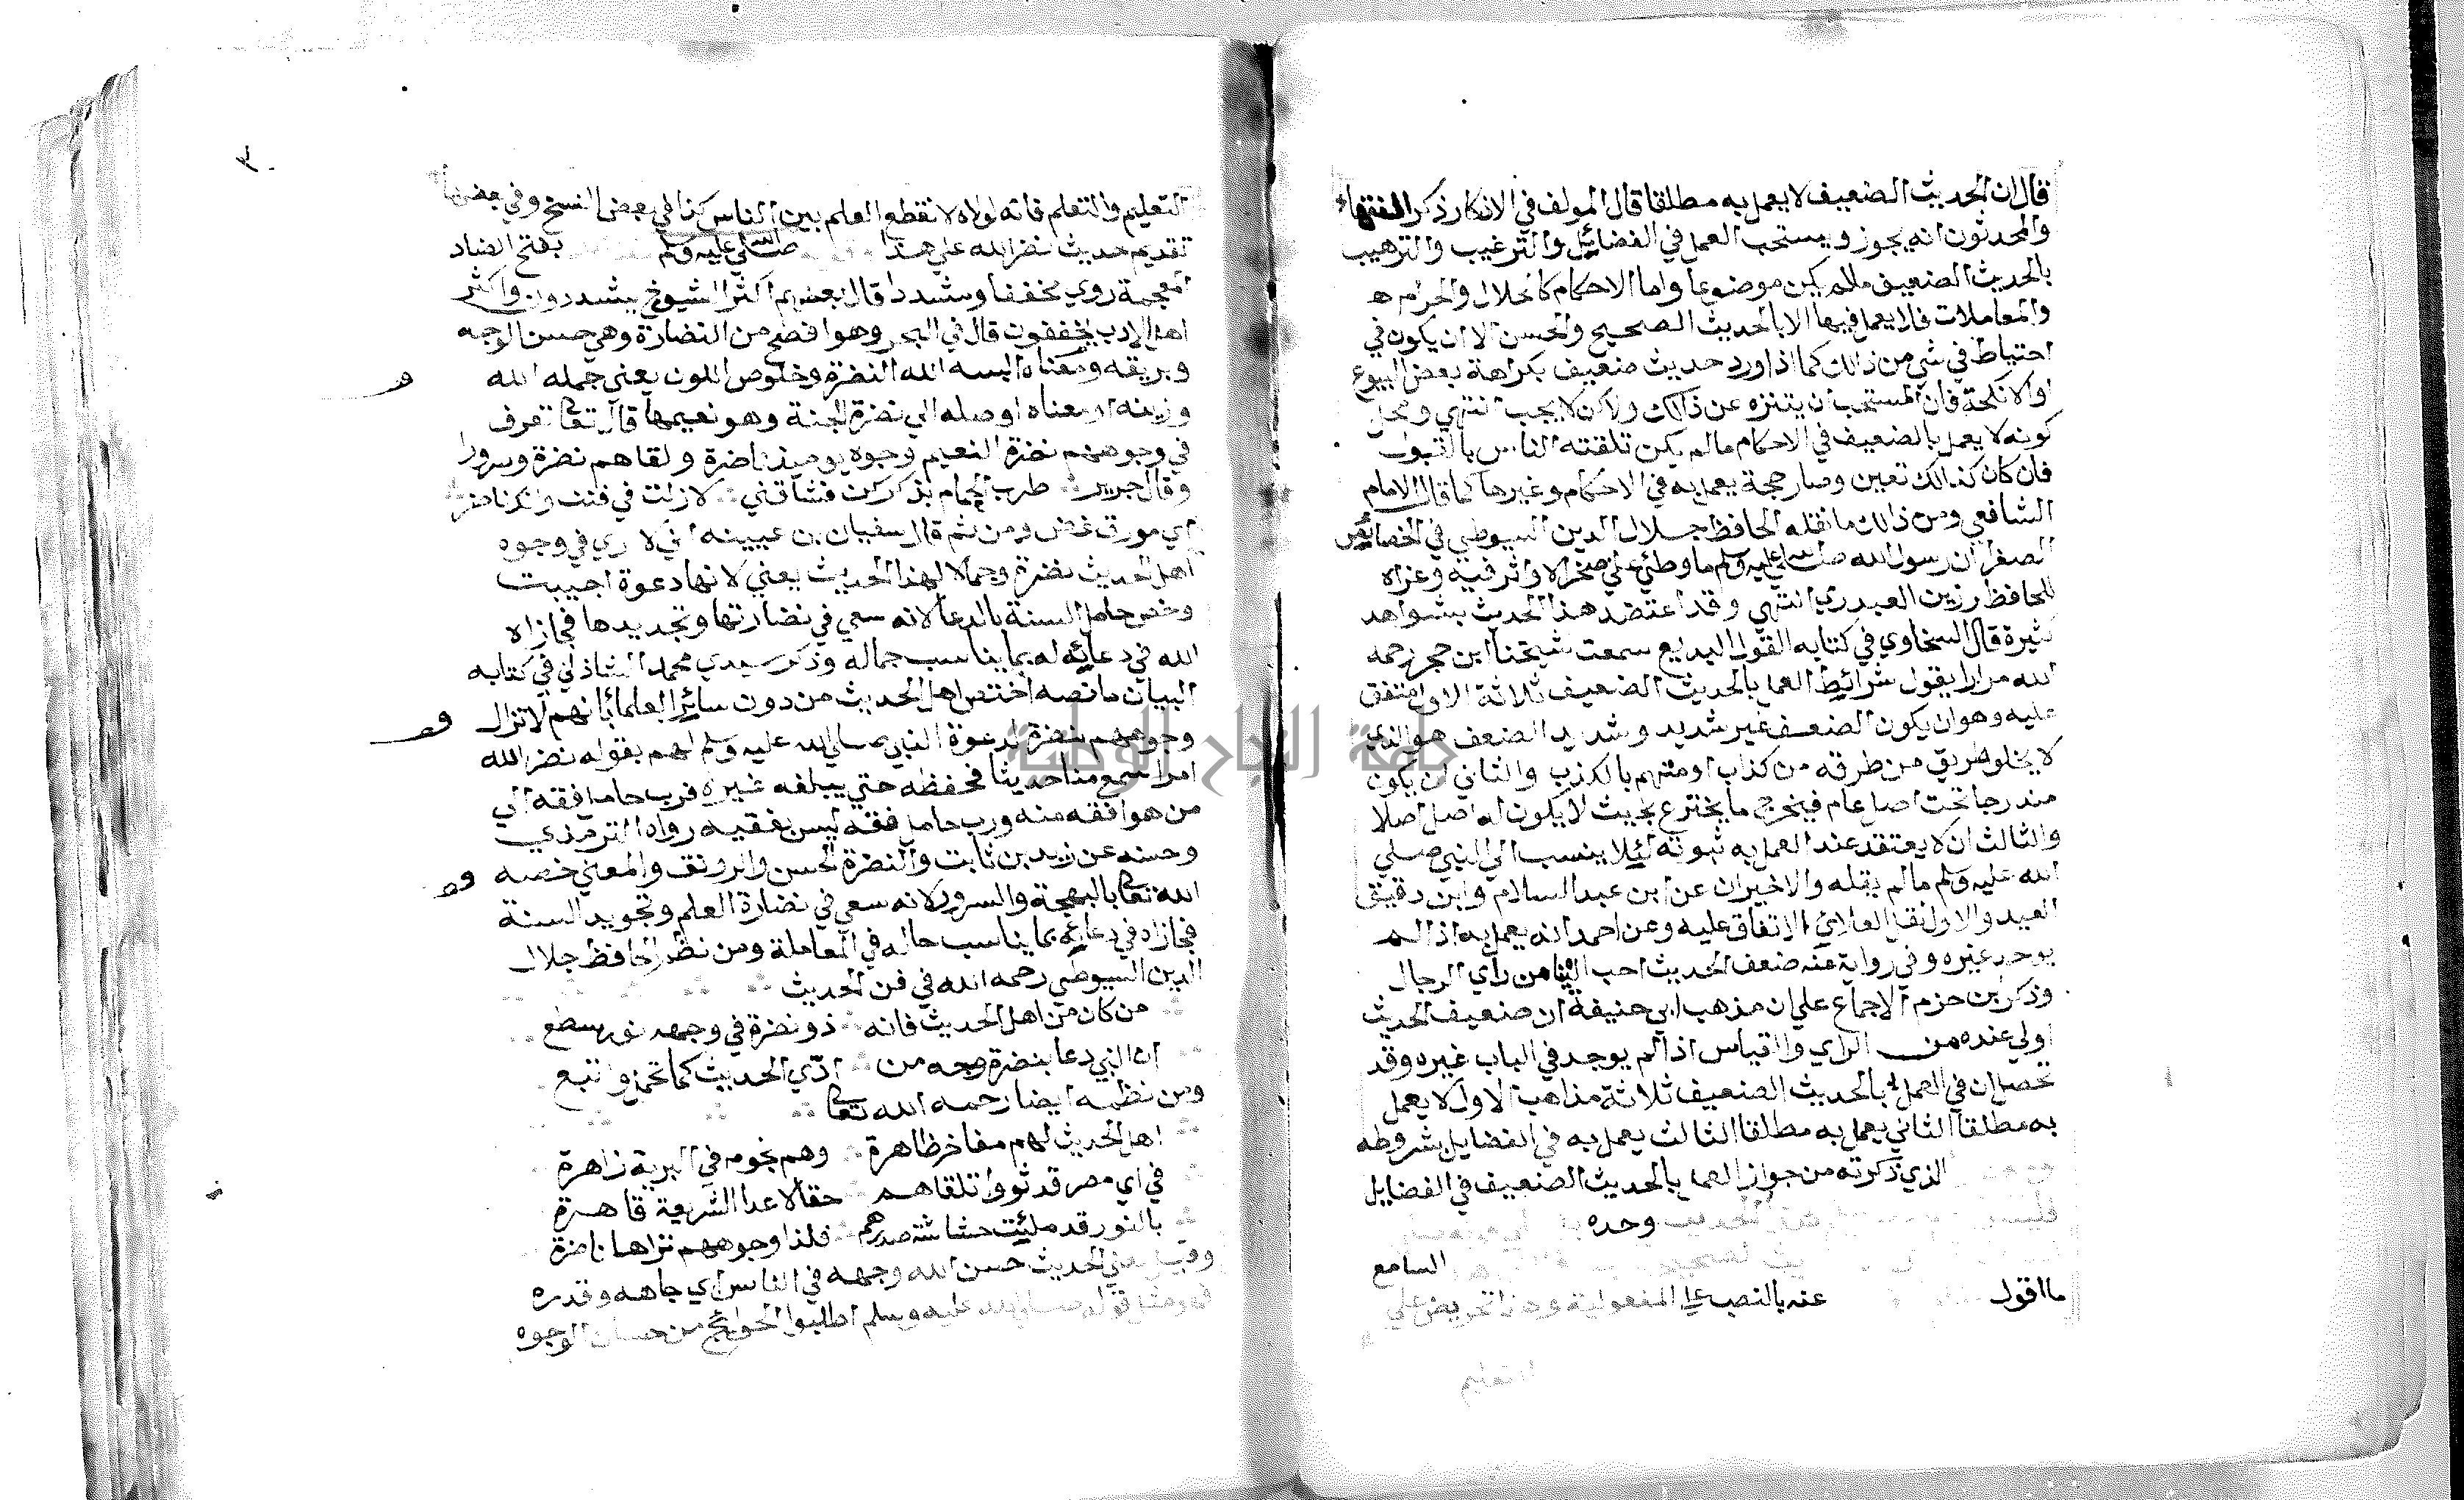 قال ان الحديث الضعيف لا يعمل به مطلقا قال المولف في الاذكار ذكر الفقهاء
والمحدثون انه يجوز ويستحب العمل في الفضائل والترغيب والترهيب
بالحديث الضعيف ما لم يكن موضوعا واما الاحكام كالحلال والحرام
والمعاملات فلا يعمل فيها الا بالحديث الصحيح والحسن الا ان يكون في
احتياط في شي من ذالك كما اذا ورد حديث ضعيف بكراهة بعض البيوع
او الانكحة فان المستحب ان يتنزه عن ذالك ولاكن لا يجب انتهي ومحل
كونه لا يعمل بالضعيف في الاحكام ما لم يكن تلقته الناس بالقبول
فان كان كذالك تعين وصار حجة يعمل به في الاحكام وغيرها كما قال الامام
الشافعي ومن ذالك ما نقله الحافظ جلال الدين السيوطي في الخصائص
الصغرا ان رسول الله صلى الله عليه وسلم ما وطئ علي صخر الا واثر فيه وعزاه
للحافظ رزين العبدري انتهي وقد اعتضد هذا الحديث بشواهد
كثيرة قال السخاوي في كتابه القول البديع سمعت شيخنا ابن حجر رحمه
الله مرارا يقول شرائط العمل بالحديث الضعيف ثلاثة الاول متفق
عليه وهو ان يكون الضعف غير شديد وشديد الضعف هو الذي
لا يخلو طريق من طرقه من كذاب او متهم بالكذب والثاني ان يكون
مندرجا تحت اصل عام فيخرج ما يخترع بحيث لا يكون له اصل اصلا
والثالث ان لا يعتقد عند العمل به ثبوته لئلا ينسب الي النبي صلي
الله عليه وسلم ما لم يقله والاخيران عن ابن عبد السلام وابن دقيق
العيد والاول نقل العلائي الاتفاق عليه وعن احمد انه يعمل به اذا لم
يوجد غيره وفي رواية عنه ضعف الحديث احب الينا من راي الرجال
وذكر ابن حزم الاجماع علي ان مذهب ابي حنيفة ان ضعيف الحديث
اولي عنده من الراي والقياس اذا لم يوجد في الباب غيره وقد
تحصل ان في العمل بالحديث الضعيف ثلاثة مذاهب الاول لا يعمل
به مطلقا الثاني يعمل به مطلقا الثالث يعمل به في الفضايل بشروطه
الذي ذكرته من جواز العمل بالحديث الضعيف في الفضايل
فليس الحديث وحده
السامع
ما اقول عنه بالنصب على المفعولية وهذا تحريض علي
التعليم
٣
التعليم والتعلم فانه لولاه لانقطع العلم بين الناس كذا في بعض النسخ وفي بعضها
تقديم حديث نضر الله علي هذا صلى الله عليه وسلم بفتح الضاد
المعجمة روي مخففا ومشددا قال بعضهم اكثر الشيوخ يشددون واكثر
اهل الادب يخففون قال في البحر وهو افصح من النضارة وهي حسن الوجه
وبريقه ومعناه البسه الله النضرة وخلوص اللون يعني جمله الله
وزينه او معناه اوصله الي نضرة الجنة وهو نعيمها قال تعالى تعرف
في وجوههم نضرة النعيم وجوه يوميذ ناضرة ولقاهم نضرة وسرورا
وقال جرير طرب الحمام بذكركن فشاقني لا زلت في فنن وايك ناضر
اي مورق غض ومن ثم قال سفيان بن عيينه اني لا ري في وجوه
اهل الحديث نضرة وجمالا لهذا الحديث يعني لانها دعوة اجيبت
وخص حامل السنة بالدعا لانه سعي في نضارتها وتجديدها فجازاه
الله في دعائه له بما يناسب جماله وذكر سيدي محمد الشاذلي في كتابه
البيان ما نصه اختص اهل الحديث من دون سائر العلما بانهم لا تزال
وجوههم نضرة لدعوة النبي صلي الله عليه وسلم لهم بقوله نضر الله
امرا سمع منا حديثا فحفظه حتي يبلغه غيره فرب حامل فقه الي
من هو افقه منه ورب حامل فقه ليس بفقيه رواه الترمذي
وحسنه عن زيد بن ثابت والنضرة الحسن والرونق والمعني خصه
الله تعالى بالبهجة والسرور لانه سعي في نضارة العلم وتجويد السنة
فجازاه في دعائه بما يناسب حاله في المعاملة ومن نظم الحافظ جلال
الدين السيوطي رحمه الله في فن الحديث
من كان من اهل الحديث فانه ذو نضرة في وجهه نور سطع
ان النبي دعا بنضرة وجه من ادي الحديث كما تحمل واتبع
ومن نظمه ايضا رحمه الله تعالى
اهل الحديث لهم مفاخر ظاهرة وهم نجوم في البرية زاهرة
في اي مصر قد ثووا تلقاهم حقا لاعدا الشريعة قاهرة
بالنور قد ملئت حشاشة صدرهم فلذا وجوههم تراها ناضرة
وقيل معني الحديث حسن الله وجهه في الناس اي جاهه وقدره
قوله صلي الله عليه وسلم اطلبوا الحوائج من حسان الوجوه
جامعة النجاح الوطنية